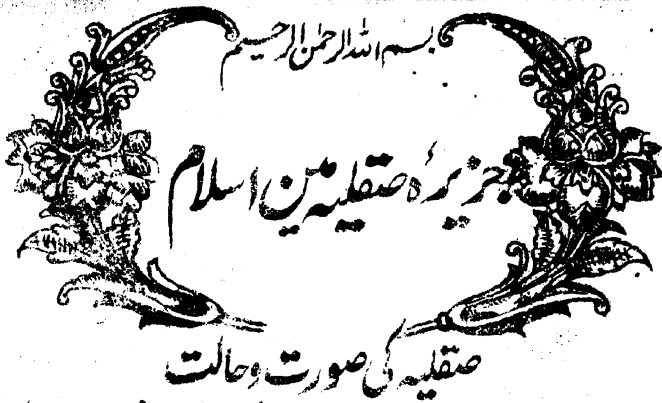 بسم اللہ الرحمٰن الرحیم
جزیرۂ صقلیہ مین اسلام
صقلیہ کی صورت و حالت